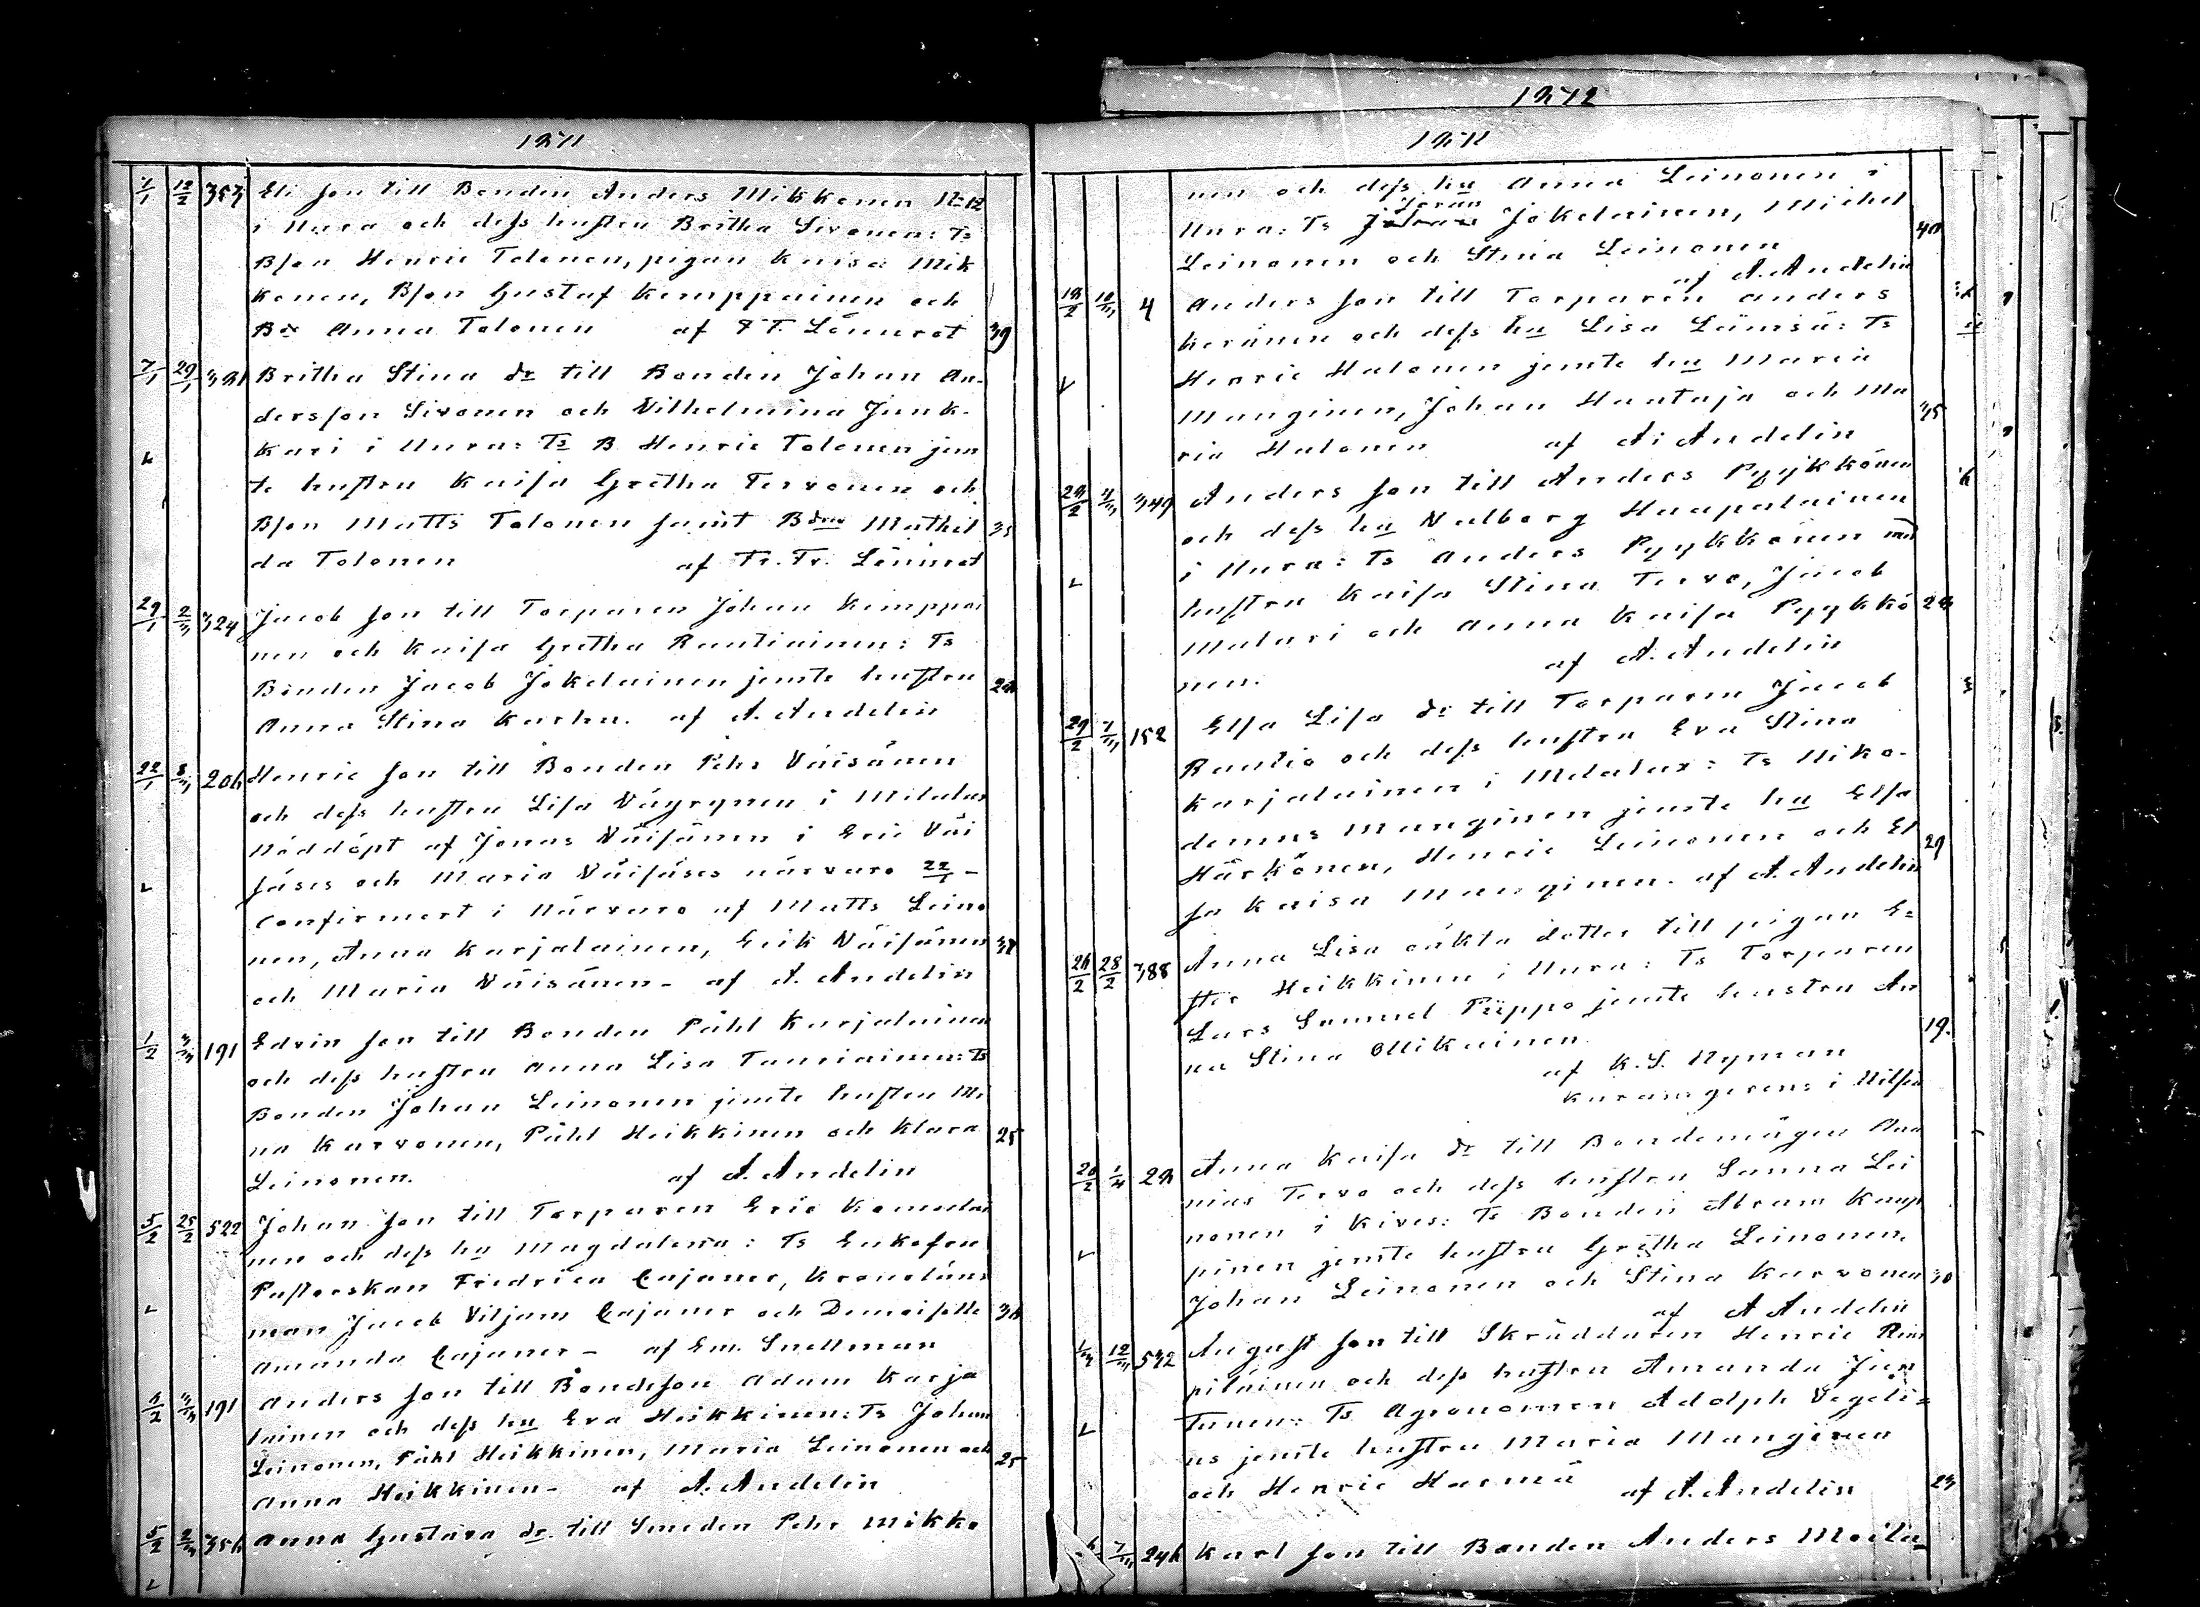 1871
1/1 12/2 353 Eli son till Bonden Anders Mikkonen
i Uura och dess hustru Britha Sivonen: Ts
Bson Henric Tolonen, pigan Kaisa Mik
konen, Bson Gustaf Kemppainen och
Bdr Anna Tolonen af F T. Lönnrot 39
7/1 29/1 391 Britha Stina dr till Bonden Johan An-
dersson Sivonen och Vilhelmina Junk-
kari i Uura: Ts B. Henric Tolonen jem
te hustru Kaisa Gretha Tervonen och
Bson Matts Tolonen samt Bdrn Mathil 35
da Tolonen af Fr. Tr. Lönnrot
29/1 2/3 324 Jacob son till Torparen Johan Kemppai
nen och Kaisa Gretha Rautiainen: Ts
Bonden Jacob Jokelainen jemte hustru
Anna Stina Karhu. af A. Andelin
22/1 206 Henric son till Bonden Pehr Väisänen
och dess hustru Lisa Väyrynen i Melalax
Nöddöpt af Jonas Väisänen i Eric Väi
säses och Maria Väisäses närvaro 22/1 -
confirmert i närvaro af Matts Leino
nen, Anna Karjalainen, Erik Väisänen
och Maria Väisänen - af A. Andelin
1/2 3/3 191 Edvin son till Bonden Påhl Karjalainen
och dess hustru Anna Lisa Tauriainen: Ts
Bonden Johan Leinonen jemte hustru Mi
na Karvonen, Påhl Heikkinen och Klara 25
Leinonen. af A. Andelin
5/2 25/2 522 Johan son till Torparen Eric Komulai
nen och dess hu Magdalena: Ts Enkefru
Pastorskan Fredrica Cajaner, Kronoläns
man Jacob Viljam Cajaner och Demoiselle 36
Amanda Cajaner - af Em. Snellman
191 Anders son till Bondeson Adam Karja
lainen och dess hu Eva Heikkinen: Ts Johan
Leinonen, Påhl Heikkinen, Maria Leinonen och 25
Anna Heikkinen - af A. Andelin
5/2 2/3 356 Anna Gustava dr. till Smeden Pehr Mikko
1872
1871
nen och dess hu Anna Leinonen i
Göran
Uura: Ts Jokelainen, Michel
Leinonen och Stina Leinonen
af A. Andelin
4 Anders son till Torparen Anders
Keränen och dess hu Lisa Lämsä: Ts
Henric Halonen jemte hu Maria
Manginen, Johan Hautaja och Ma 35
ria Halonen af A. Andelin
349 Anders son till Anders Pyykkönen
och dess hu Valborg Haapalainen
i Uura: Ts Anders Pyykkönen med
hustru Kaisa Stina Tervo, Jacob
Mulari och Anna Kaisa Pyykkö
af A. Andelin
nen.
29/2 152 Elsa Lisa dr till Torparen Jacob
Rautio och dess hustru Eva Stina
Karjalainen i Melalax: Ts Niko-
demus Manginen jemte hu Elsa
Härkönen, Henric Leinonen och El 29
sa Kaisa Manginen. af A. Andelin
26/2 28/2 388 Anna Lisa oäkta dotter till pigan E=
ster Heikkinen i Uura: Ts Torparen
Lars Samuel Piippo jemte hustru An
na Stina Mikkainen. 19.
af K. S. Nyman
Anna Kaisa dr till Bondemågen Ana
nias Tervo och dess hustru Sanna Lei
nonen i Kives: Ts Bonden Abram Kemp
pinen jemte hustru Gretha Leinonen,
Johan Leinonen och Stina Karvonen 30
af A Andelin
532 August son till Skräddaren Henric Rim
piläinen och dess hustru Amanda Jun
tunen: Ts Agronomen Adolph Vegeli=
us jemte hustru Maria Manginen
och Henric Harmä af A. Andelin 23
246 Karl son till Bonden Anders Moila